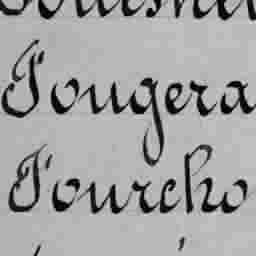 Fougera
Fourcho